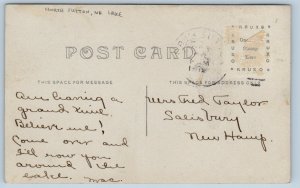 NORTH SUTTON, NH LAKE
POST CARD
THIS SPACE FOR MESSAGE
THIS SPACE FOR ADDRESS
KRUXO
KRUXO
Stamp
Here
KRUXO
Am having a
grand time.
Believe me!
Come over and
I'll row you
around the
lake. Mac
Mrs Fred Taylor
Salisbury
New Hamp.